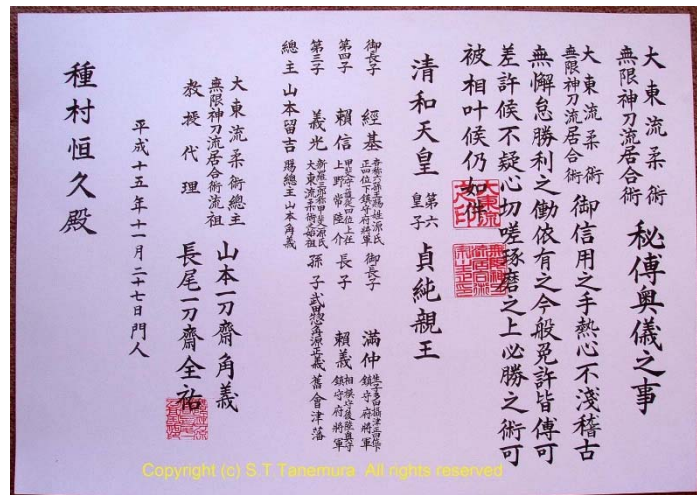 大東流柔術
無限神刀流居合術
秘傳奥儀之事
大東流柔術
無限神刀流居合術
御信用之手熱心不淺稽古
無懈怠勝利之働依有之今般免許皆傳可
差許候不疑心切嗟琢磨之上必勝之術可
被相叶候仍如件
清和天皇 第六皇子 貞純親王
御長子 經基
正四位下鎮守府將軍
御長子 滿仲
鎮守府將軍
第四子 頼信
上野常陸介
長子 頼義
鎮守府將軍
第三子 義光
孫子武田惣角源正義 舊會津藩
總主 山本留吉 賜總主山本角義
大東流柔術總主
無限神刀流居合術流祖
山本一刀齋角義
教授代理
長尾一刀齋全祐
平成十五年十一月二十七日門人
種村恒久殿
Copyright (c) S.T Tanemura All rights reserved